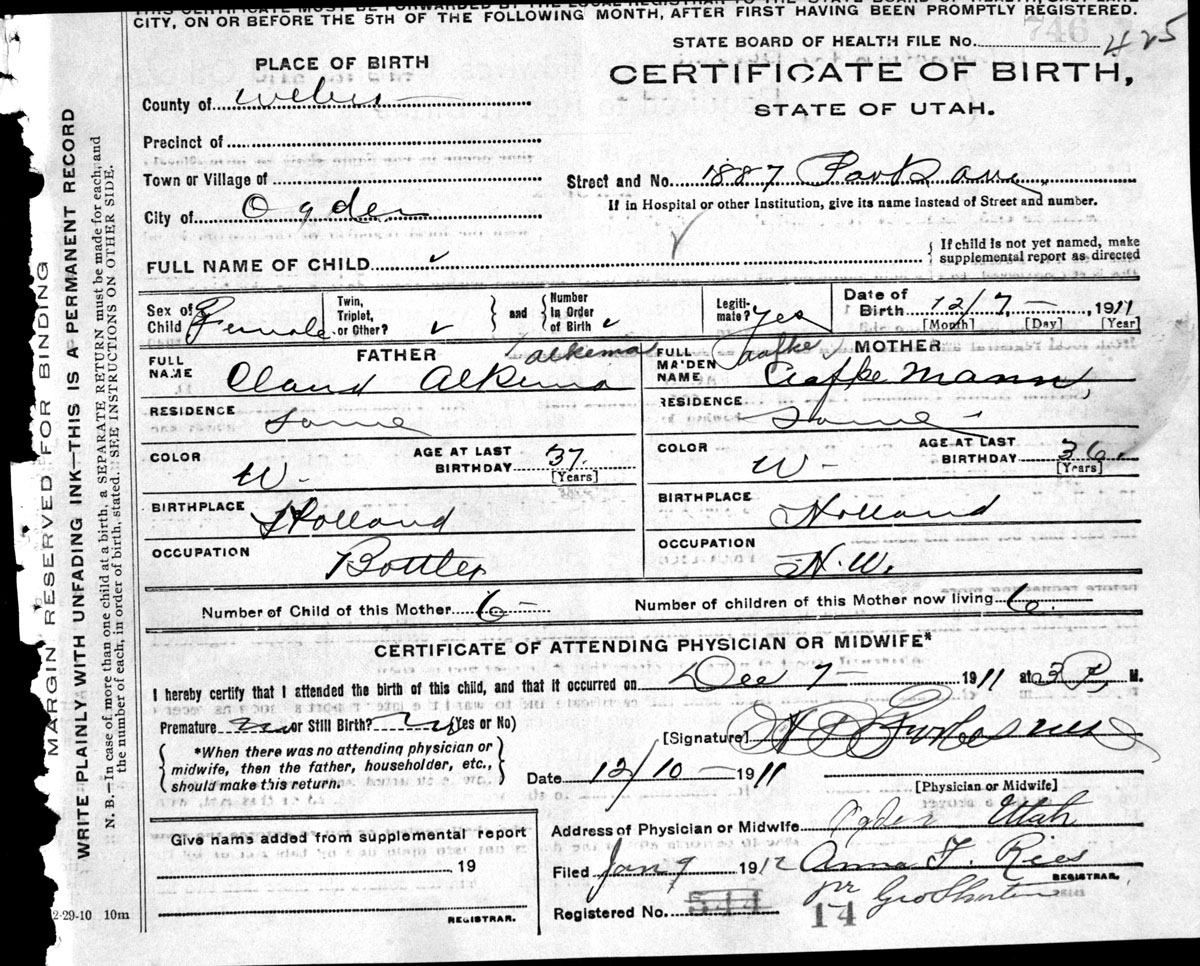 THIS CERTIFICATE MUST BE FORWARDED BY THE LOCAL REGISTRAR TO THE STATE BOARD OF HEALTH, SALT LAKE
CITY, ON OR BEFORE THE 5TH OF THE FOLLOWING MONTH, AFTER FIRST HAVING BEEN PROMPTLY REGISTERED.
746
STATE BOARD OF HEALTH FILE No. 425
PLACE OF BIRTH
CERTIFICATE OF BIRTH,
STATE OF UTAH.
County of Weber
Precinct of
Town or Village of
Street and No. 1887
City of Ogden
If in Hospital or other Institution, give its name instead of Street and number.
FULL NAME OF CHILD
If child is not yet named, make supplemental report as directed
Sex of Child Female
Twin, Triplet, or Other?
and
Number In Order of Birth
Legitimate? yes
Date of Birth 12/7 1911
[Month] [Day] [Year]
FATHER
Alkema
FULL NAME Claud Alkema
RESIDENCE Same
COLOR W. AGE AT LAST BIRTHDAY 37 [Years]
BIRTHPLACE Holland
OCCUPATION Bottler
MOTHER
Taafke
FULL MAIDEN NAME Mann
RESIDENCE Same
COLOR W. AGE AT LAST BIRTHDAY 36. [Years]
BIRTHPLACE Holland
OCCUPATION H.W.
Number of Child of this Mother 6 Number of children of this Mother now living 6.
CERTIFICATE OF ATTENDING PHYSICIAN OR MIDWIFE*
I hereby certify that I attended the birth of this child, and that it occurred on Dec 7 1911 at 3 P. M.
Premature no or Still Birth? no (Yes or No)
*When there was no attending physician or midwife, then the father, householder, etc., should make this return.
[Signature]
Date 12/10 1911
[Physician or Midwife]
Address of Physician or Midwife Ogden Utah
Give name added from supplemental report
19
REGISTRAR.
Filed Jan 9 1912 Anna F. Rees
REGISTRAR.
pr Geo
Registered No. 544
14
MARGIN RESERVED FOR BINDING
WRITE PLAINLY WITH UNFADING INK—THIS IS A PERMANENT RECORD
N. B.—In case of more than one child at a birth, a SEPARATE RETURN must be made for each, and
the number of each, in order of birth, stated. SEE INSTRUCTIONS ON OTHER SIDE.
2-29-10 10m